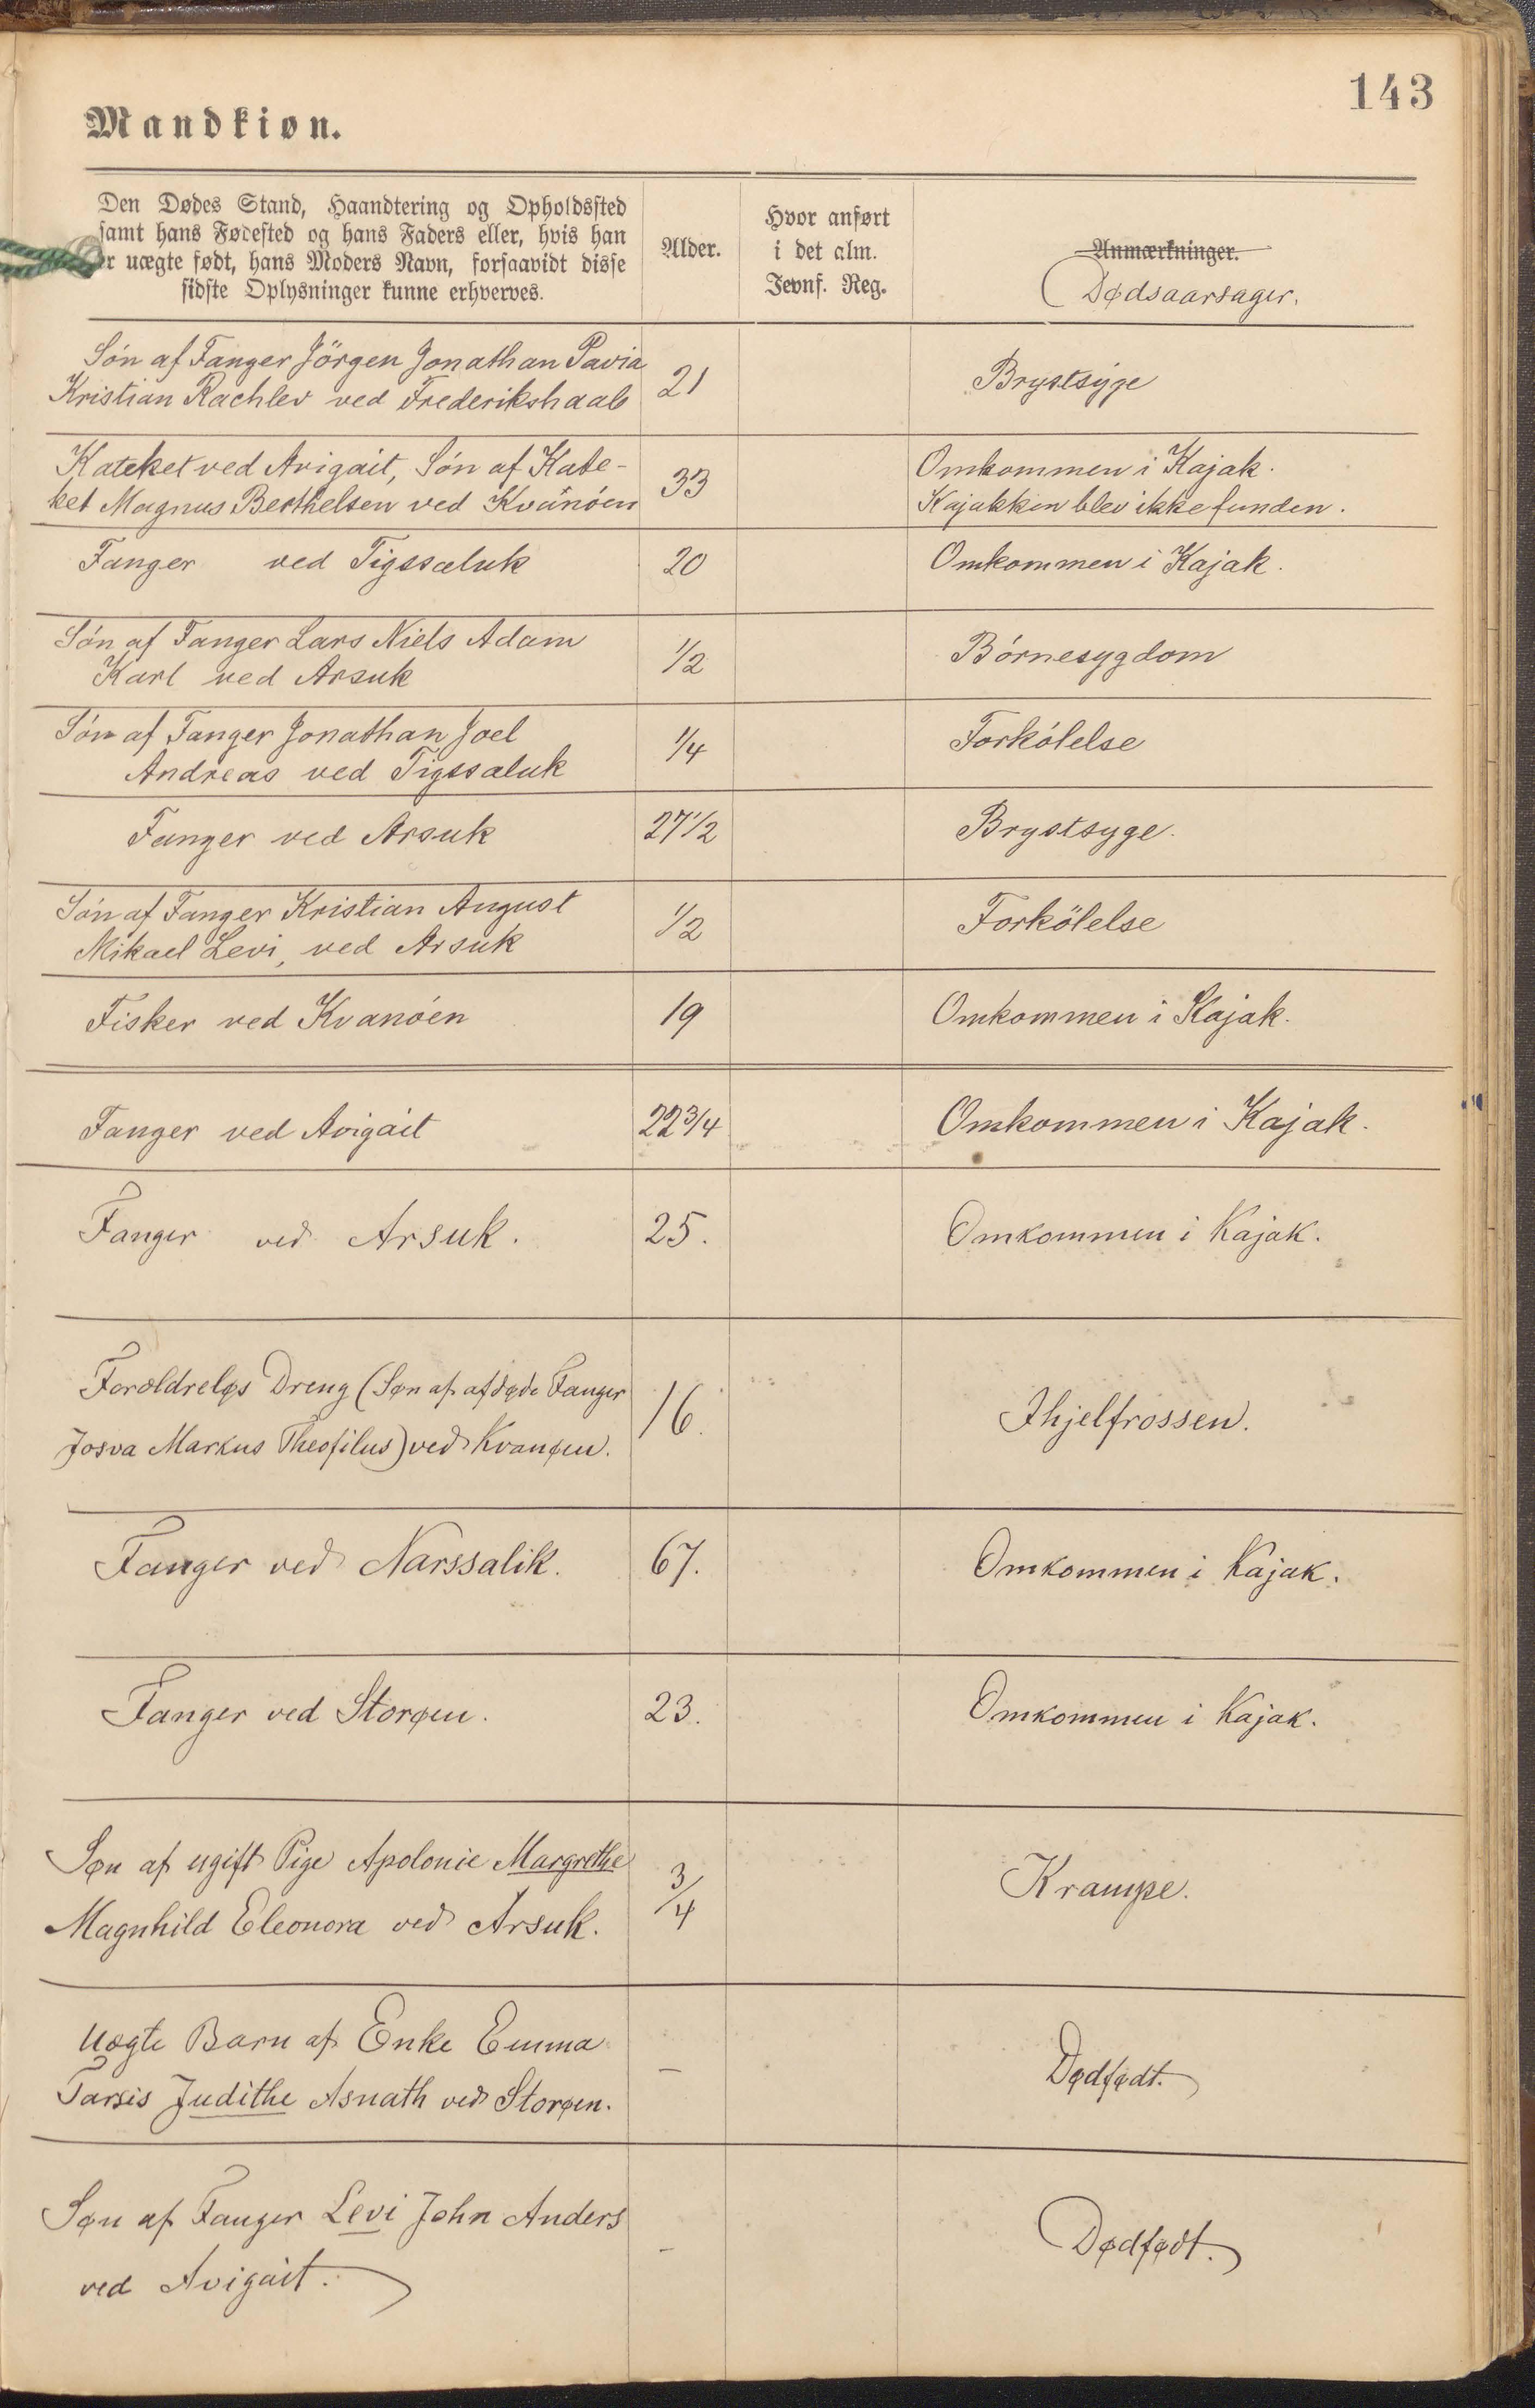 143
Mandkiøn.
Den Dødes Stand, Haandtering og Opholdssted
samt hans Fødested og hans Faders eller, hvis han
er uægte født, hans Moders Navn, forsaavidt disse
sidste Oplysninger kunne erhverves.
Alder.
Hvor anført
i det alm.
Jevnf. Reg.
Anmærkninger.
Dødsaarsager.
Søn af Fanger Jörgen Jonathan Pavia
Kristian Rachlev ved Frederikshaab
21
Brystsyge
Kateket ved Avigait, Søn af Kate-
ket Magnus Berthelsen ved Kvanöen
33
Omkommen i Kajak.
Kajakken blev ikke funden.
Fanger ved Tigssaluk
20
Omkommen i Kajak.
Søn af Fanger Lars Niels Adam
Karl ved Arsuk
1/2
Börnesygdom
Søn af Fanger Jonathan Joel
Andreas ved Tigssaluk
1/4
Forkölelse
Fanger ved Arsuk
27 1/2
Brystsyge.
Søn af Fanger Kristian August
Mikael Levi, ved Arsuk
1/2
Forkölelse
Fisker ved Kvanöen
19
Omkommen i Kajak.
Fanger ved Avigait
22 3/4
Omkommen i Kajak.
Fanger ved Arsuk.
25.
Omkommen i Kajak.
Forældreløs Dreng (Søn af afdøde Fanger
Josva Markus Theofilus) ved Kvanøen.
16.
Ihjelfrossen.
Fanger ved Narssalik.
67.
Omkommen i Kajak.
Fanger ved Storøen.
23.
Omkommen i Kajak.
Søn af ugift Pige Apolonie Margrethe
Magnhild Eleonora ved Arsuk.
3/4
Krampe.
Uægte Barn af Enke Emma
Tarsis Judithe Asnath ved Storøen.
—
Dødfødt.
Søn af Fanger Levi John Anders
ved Avigait.
-
Dødfødt.